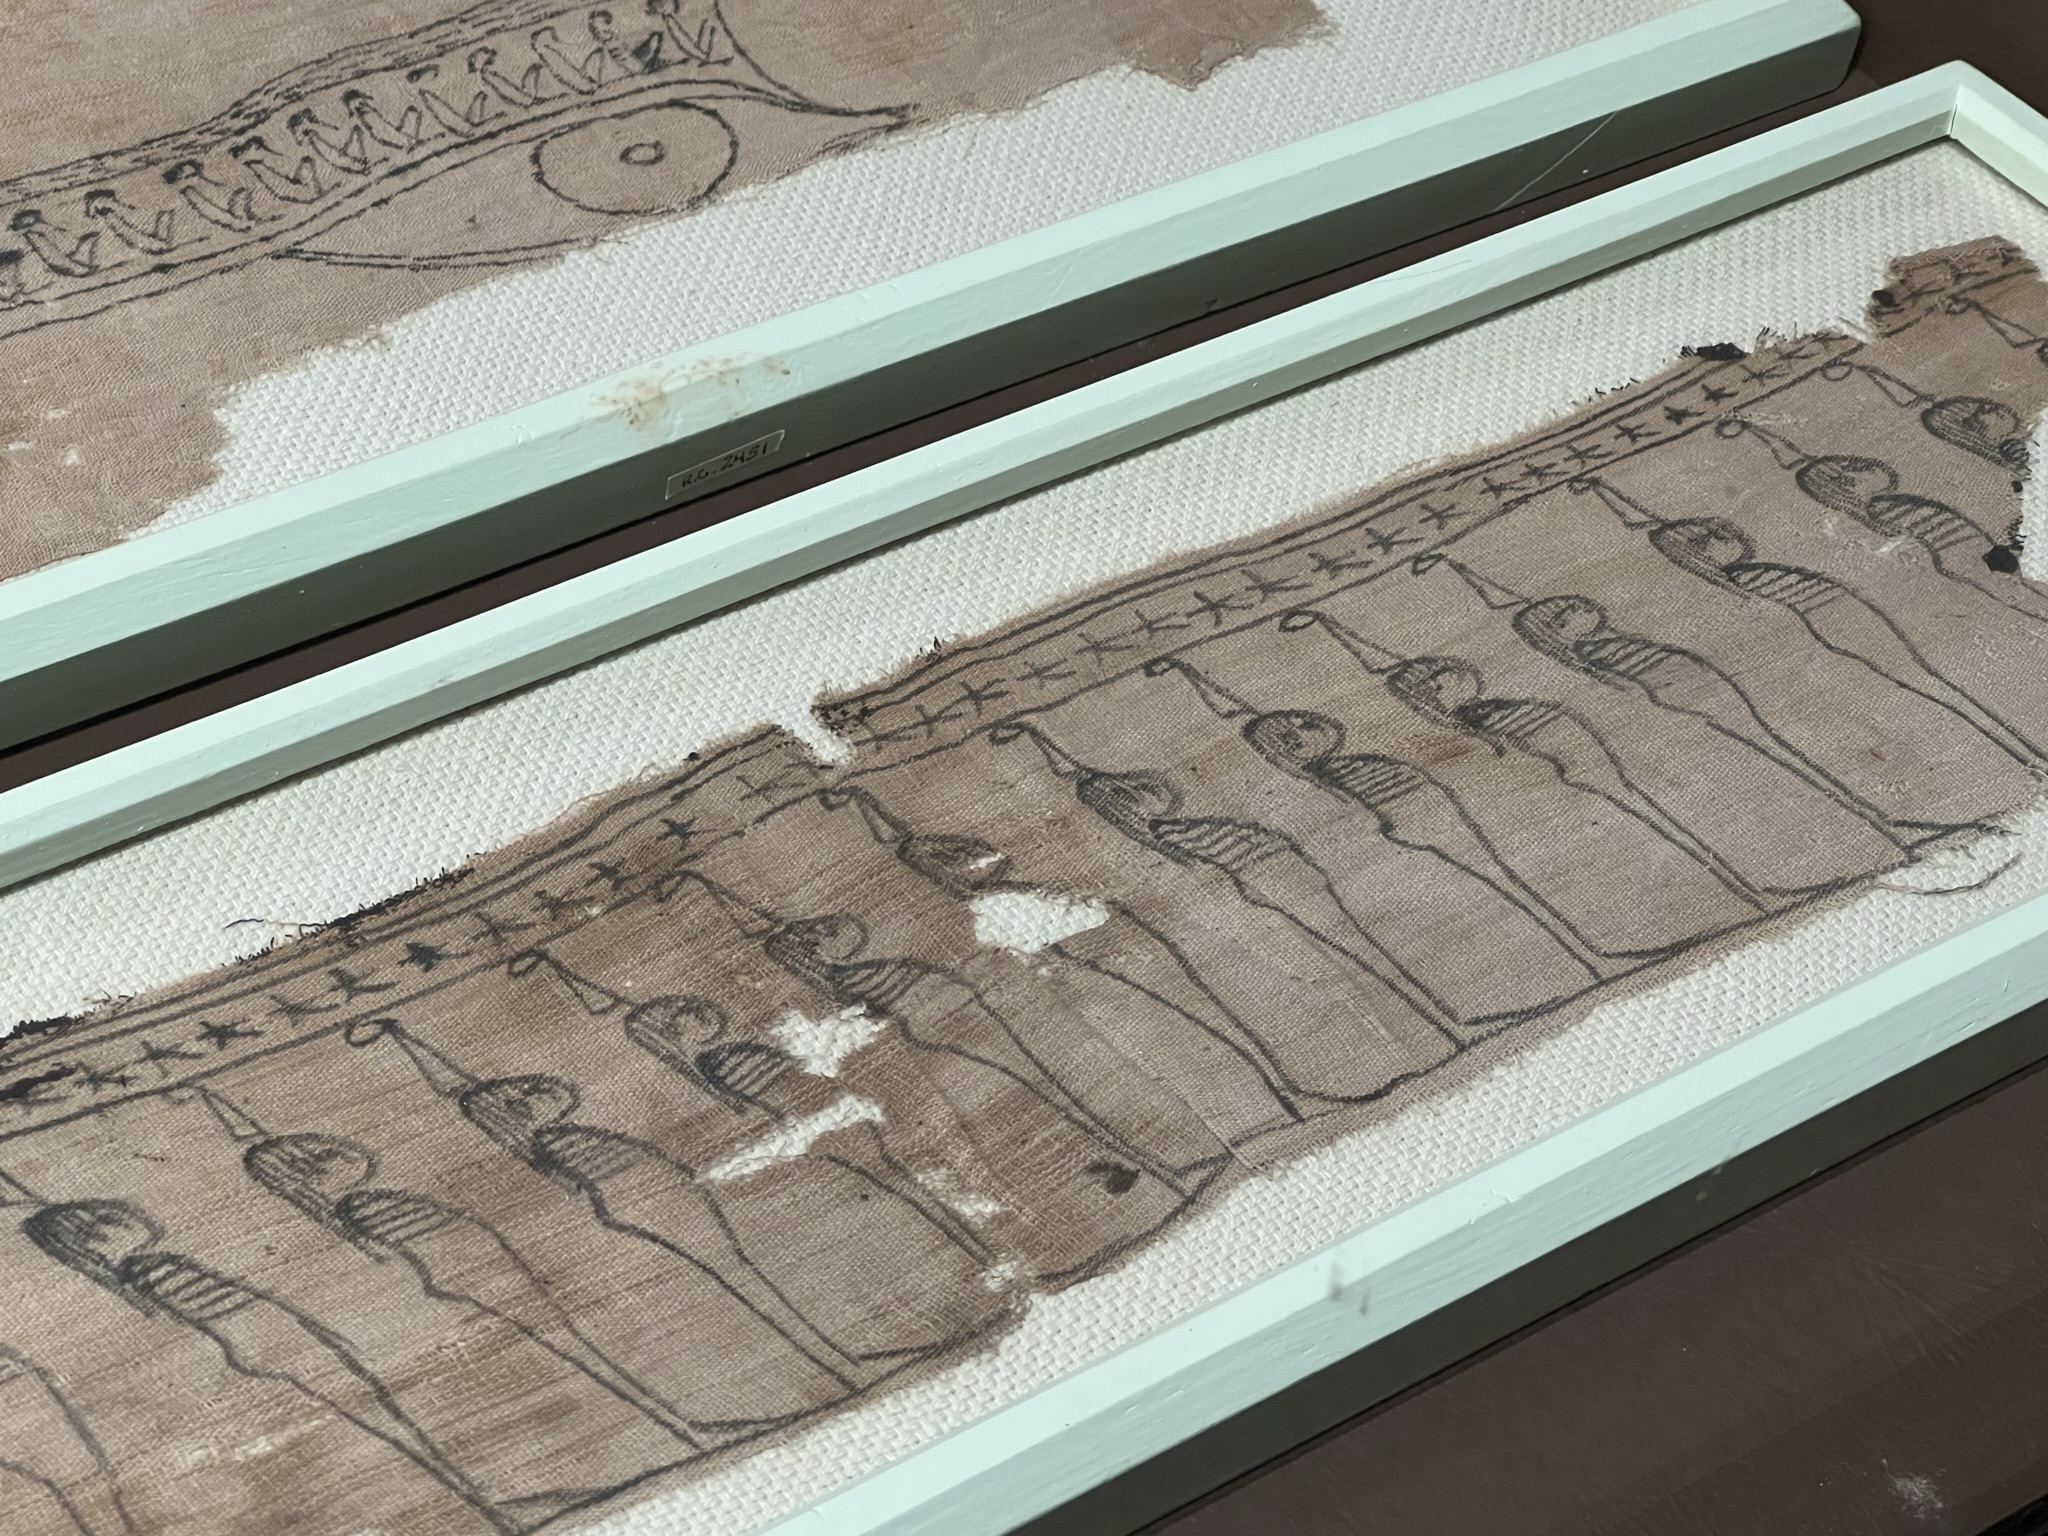 R.G. 2451